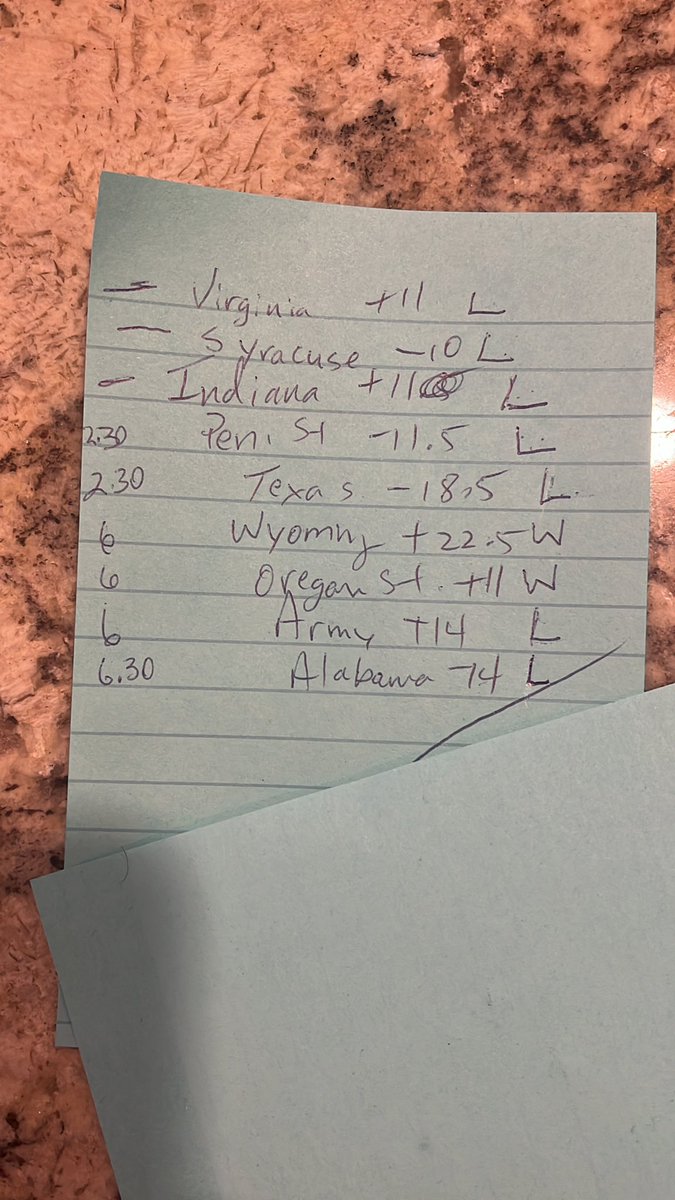 - Virginia +11 L
- Syracuse -10 L
- Indiana +11 L
2.30 Pen. St -11.5 L
2.30 Texas -18.5 L
6 Wyomny +22.5 W
6 Oregan St. +11 W
6 Army +14 L
6.30 Alabama -14 L